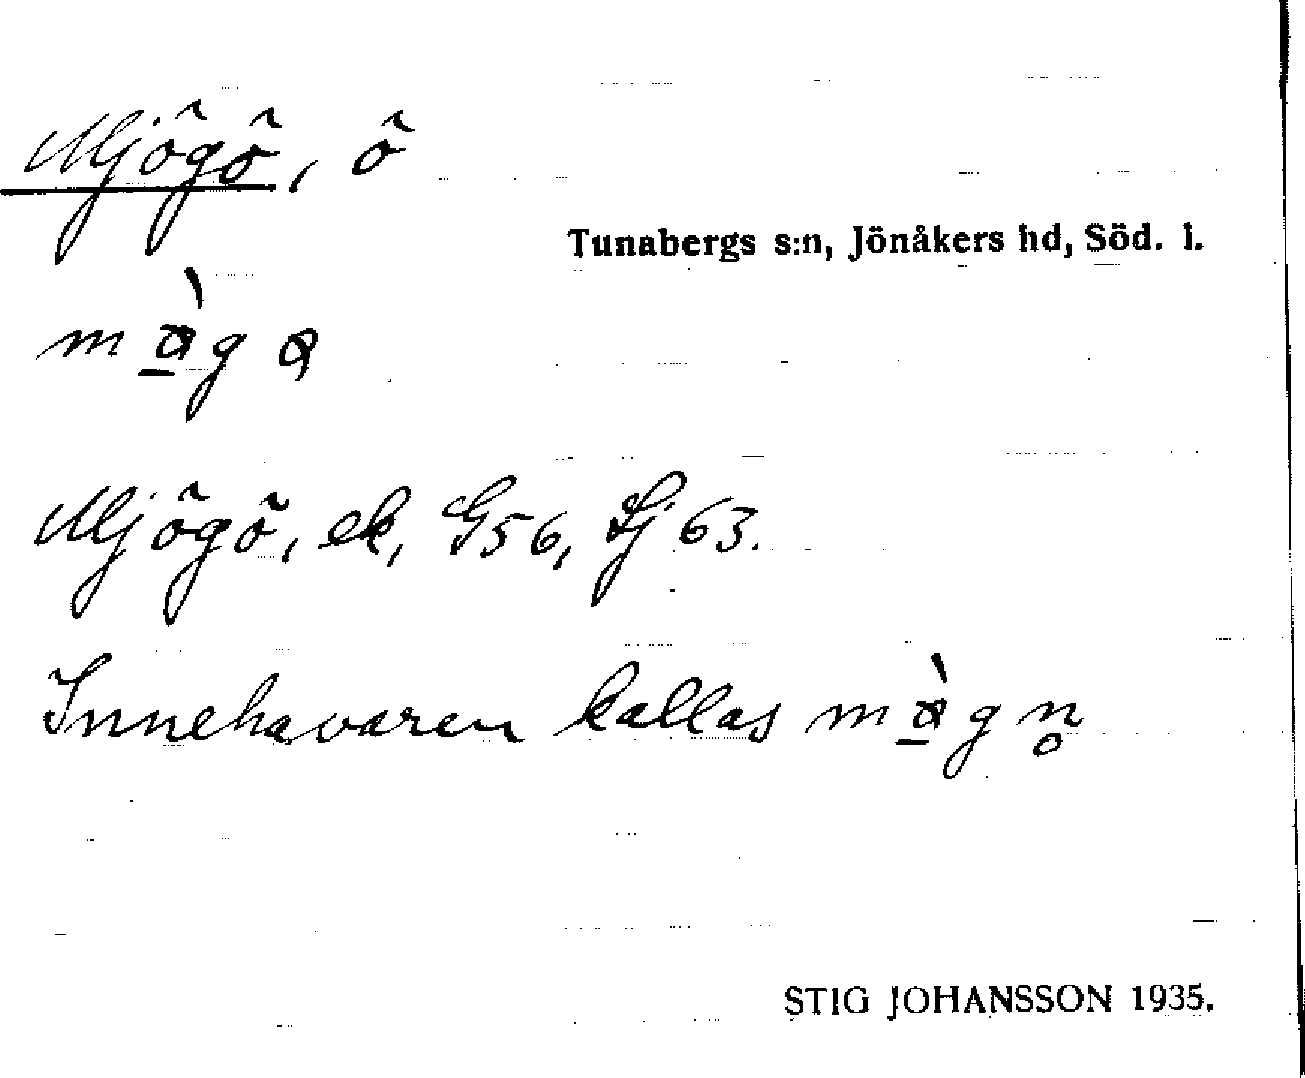 Mjögö, ö
Tunabergs s:n, Jönåkers hd, Söd. l.
Mjögö, ek, G56, Lj 63.
Innehavaren kallas
STIG JOHANSSON 1935.